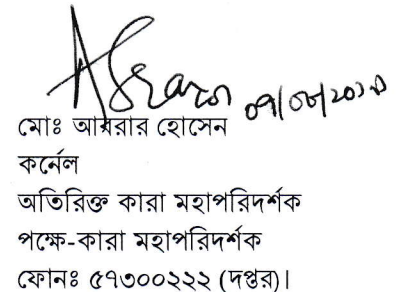 মোঃ আবরার হোসেন
কর্নেল
অতিরিক্ত কারা মহাপরিদর্শক
পক্ষে-কারা মহাপরিদর্শক
ফোনঃ ৫৭৩০০২২২ (দপ্তর)।